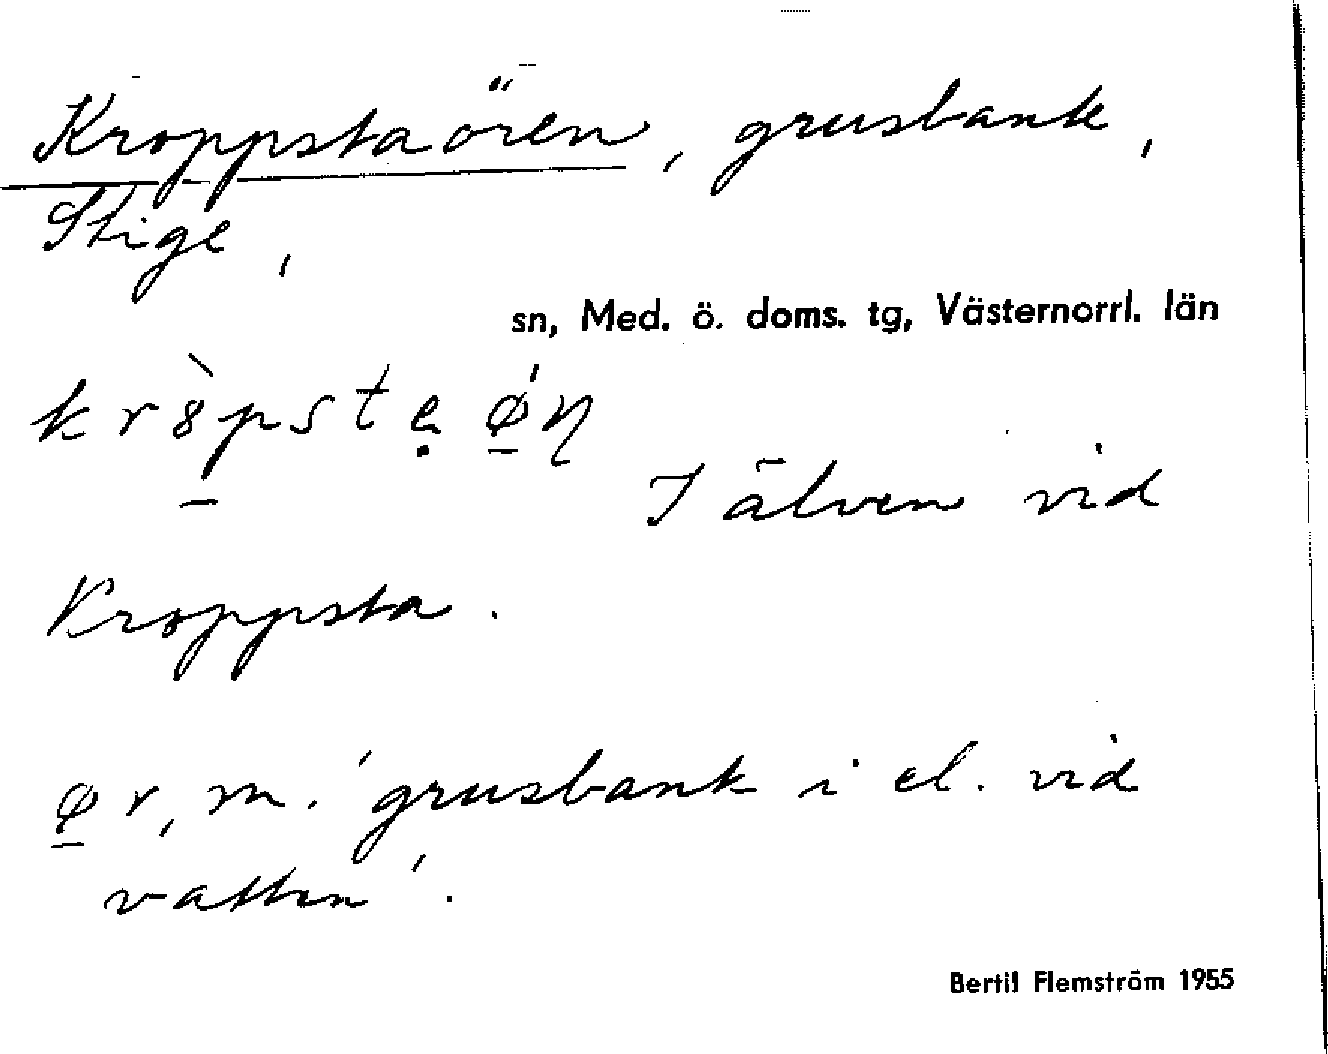 Kroppstaören, grusbank,
Stige,
sn, Med. ö. doms. tg, Västernorrl. län
kr8̀psteǿn
I älven vid
Kroppsta.
ør, m. 'grusbank i el. vid
vatten'.
Bertil Flemström 1955